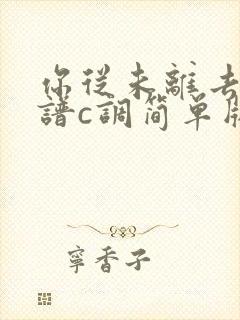 你從未離去
譜c調簡單版
寧香子